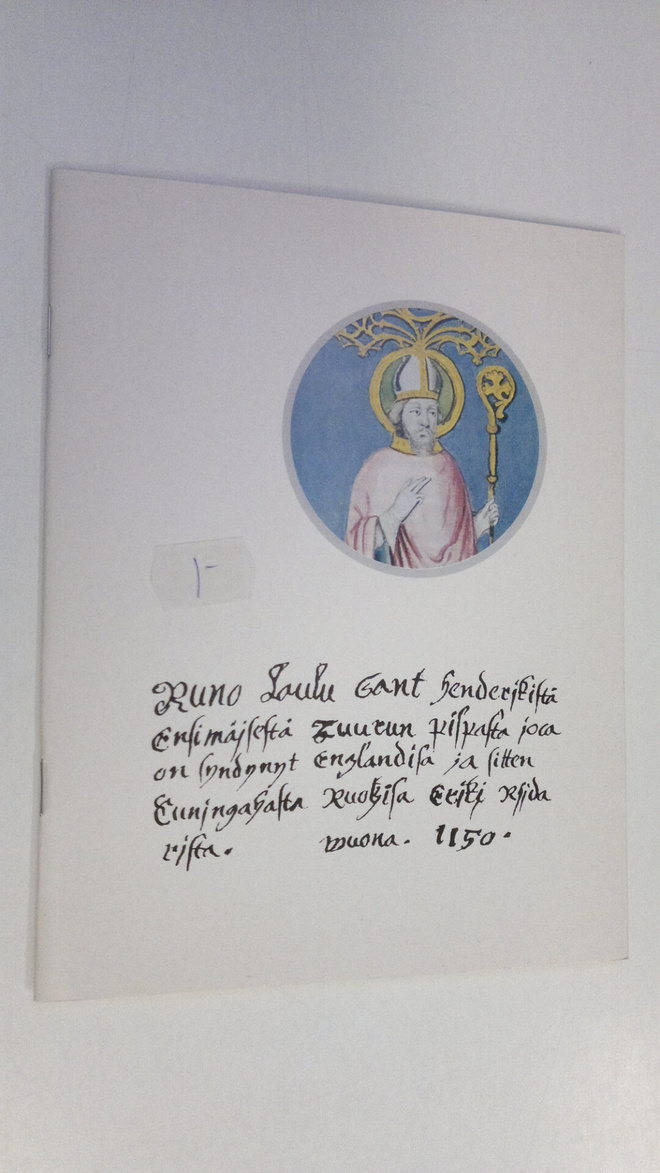 1-
Runo Laulu Sant Henderjkistä
Ensimäjsestä Tuurun Pispasta joca
on syndynyt Englandisa ja sitten
Cuningahasta Ruotzisa Erjkj Rjtda
rjsta. wuona. 1150.